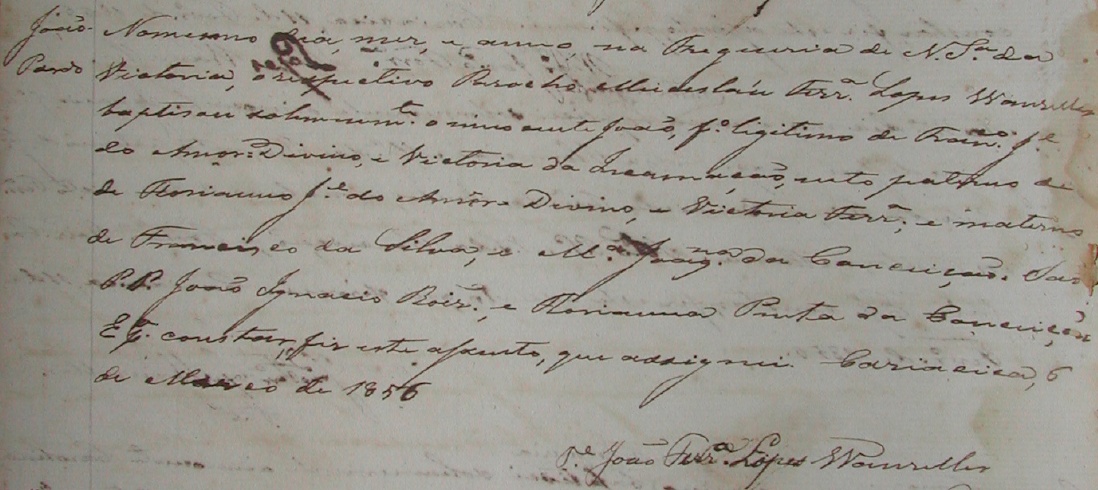 João Nomesmo dia, mez, e anno, na Freguezia de N. Sª da
Pardo Victoria, o respectivo Parocho Micesláu Ferrª Lopes Wanzeller
baptisou solemnemte o innocente João, fº legitimo de Francº Jê
do Amor Divino, e Victoria da Incarnação, neto paterno de
de Florianno Jê do Amôr Divino, e Victoria Ferrª; e materno
de Francisco da Silva, e Mª Joaqna da Conceição. São
P.P. João Ignacio Roiz, e Florianna Pinta da Conceição
E pª constar, fiz este assento, que assignei. Cariacica, 6
de Março de 1856
Pe João Ferrª Lopes Wanzeller